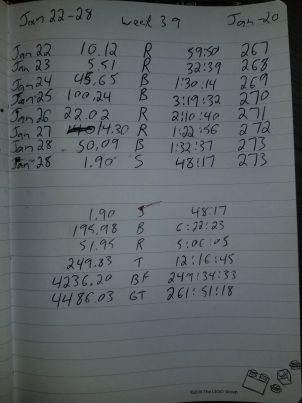 Jan 22-28 week 39 Jan-20
Jan 22 10.12 R 59:50 267
Jan 23 5.51 R 32:39 268
Jan 24 45.65 B 1:30:14 269
Jan 25 100.24 B 3:19:32 270
Jan 26 22.02 R 2:10:40 271
Jan 27 14.30 R 1:22:56 272
Jan 28 50.09 B 1:32:37 273
Jan 28 1.90 S 48:17 273
1.90 S 48:17
195.98 B 6:22:23
51.95 R 5:06:05
249.83 T 12:16:45
4236.20 BF 249:34:33
4486.03 GT 261:51:18
The LEGO Group